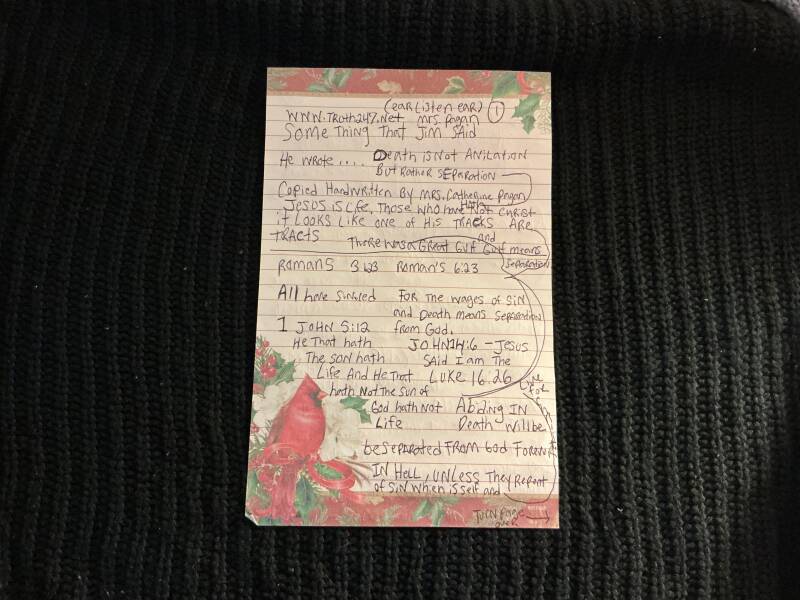 (ear Listen ear) 1
WWW.Truth247.Net, Mrs. Pagan
Some Thing That Jim Said
He wrote.... Death is Not Anilation
But Rather Separation
Copied Handwritten By Mrs. Catherine Pagan
Jesus is Life. Those who have Not Christ
it Looks Like one of His Tracks Are
Tracts There was a Great Gulf and Gulf means
Separation
Romans 3:23 Roman's 6:23
All have Sinned For The wages of Sin
and Death means Separation
1 John 5:12 from God.
He That hath John 14:6 - Jesus
The son hath Said I am The
Life And He That Luke 16:26
hath Not The Sun of
God hath Not Abiding IN
Life Death will be
be Separated From God Forever
IN Hell, UNless They Repent
of Sin when is self and
Turn Page
over